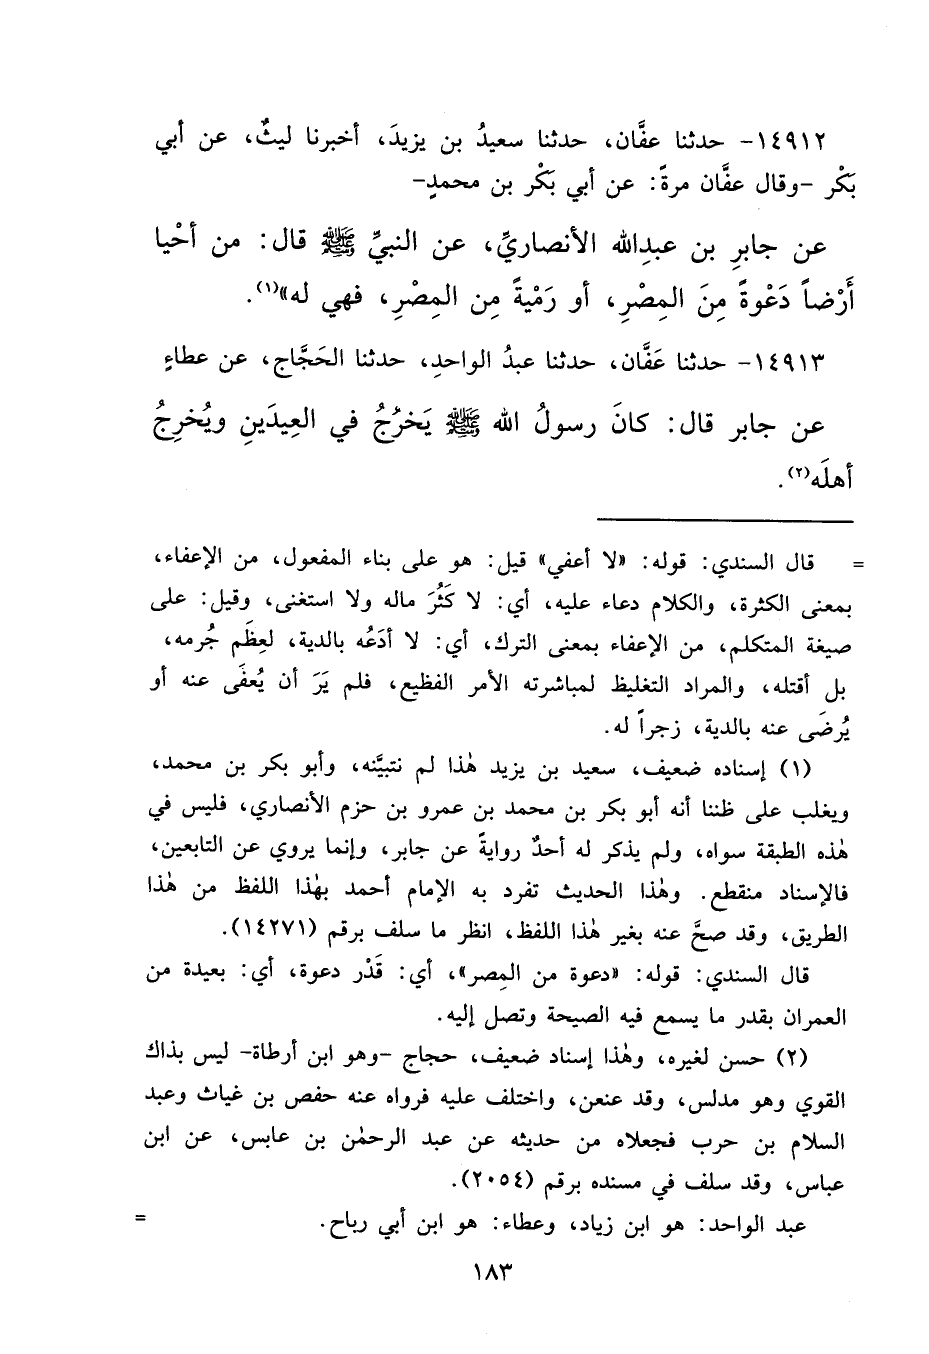 ١٤٩١٢- حدثنا عفَّان، حدثنا سعيدُ بن يزيدَ، أخبرنا ليثٌ، عن أبي
بَكْر -وقال عفَّان مرةً: عن أبي بَكْر بن محمدٍ-
عن جابرِ بن عبدِالله الأنصاريِّ، عن النبيِّ ﷺ قال: من أحْيا
أَرْضاً دَعْوةً مِنَ المِصْرِ، أو رَمْيةً مِن المِصْرِ، فهي له»(١).
١٤٩١٣- حدثنا عَفَّان، حدثنا عبدُ الواحدِ، حدثنا الحَجَّاج، عن عطاءٍ
عن جابر قال: كانَ رسولُ الله ﷺ يَخرُجُ في العِيدَينِ ويُخرِجُ
أهلَه(٢).
= قال السندي: قوله: «لا أعفي» قيل: هو على بناء المفعول، من الإعفاء،
بمعنى الكثرة، والكلام دعاء عليه، أي: لا كَثُرَ ماله ولا استغنى، وقيل: على
صيغة المتكلم، من الإعفاء بمعنى الترك، أي: لا أدَعُه بالدية، لعِظَم جُرمه،
بل أقتله، والمراد التغليظ لمباشرته الأمر الفظيع، فلم يَرَ أن يُعفَى عنه أو
يُرضَى عنه بالدية، زجراً له.
(١) إسناده ضعيف، سعيد بن يزيد هٰذا لم نتبيَّنه، وأبو بكر بن محمد،
ويغلب على ظننا أنه أبو بكر بن محمد بن عمرو بن حزم الأنصاري، فليس في
هٰذه الطبقة سواه، ولم يذكر له أحدٌ روايةً عن جابر، وإنما يروي عن التابعين،
فالإسناد منقطع. وهٰذا الحديث تفرد به الإمام أحمد بهٰذا اللفظ من هٰذا
الطريق، وقد صحَّ عنه بغير هٰذا اللفظ، انظر ما سلف برقم (١٤٢٧١).
قال السندي: قوله: «دعوة من المِصر»، أي: قَدْر دعوة، أي: بعيدة من
العمران بقدر ما يسمع فيه الصيحة وتصل إليه.
(٢) حسن لغيره، وهٰذا إسناد ضعيف، حجاج -وهو ابن أرطاة- ليس بذاك
القوي وهو مدلس، وقد عنعن، واختلف عليه فرواه عنه حفص بن غياث وعبد
السلام بن حرب فجعلاه من حديثه عن عبد الرحمٰن بن عابس، عن ابن
عباس، وقد سلف في مسنده برقم (٢٠٥٤).
عبد الواحد: هو ابن زياد، وعطاء: هو ابن أبي رباح. =
١٨٣